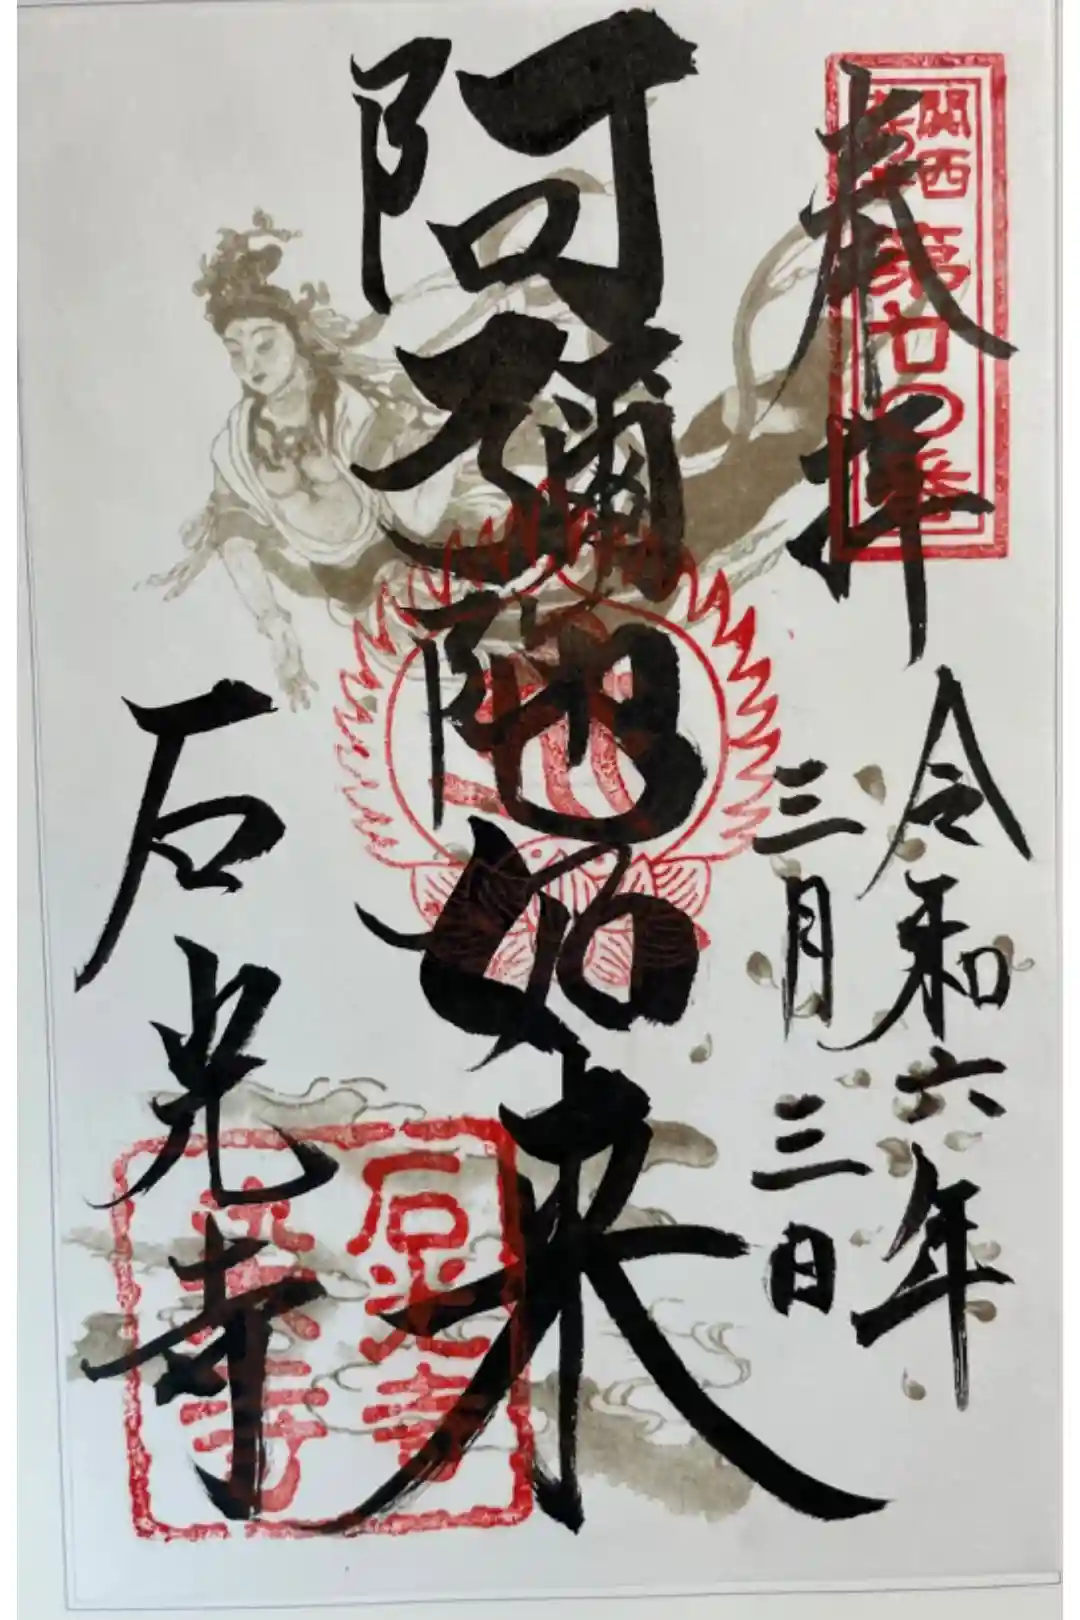 奉拝
関西
第廿の番
令和六年
三月三日
阿彌陀如来
石光寺
石光寺
染寺